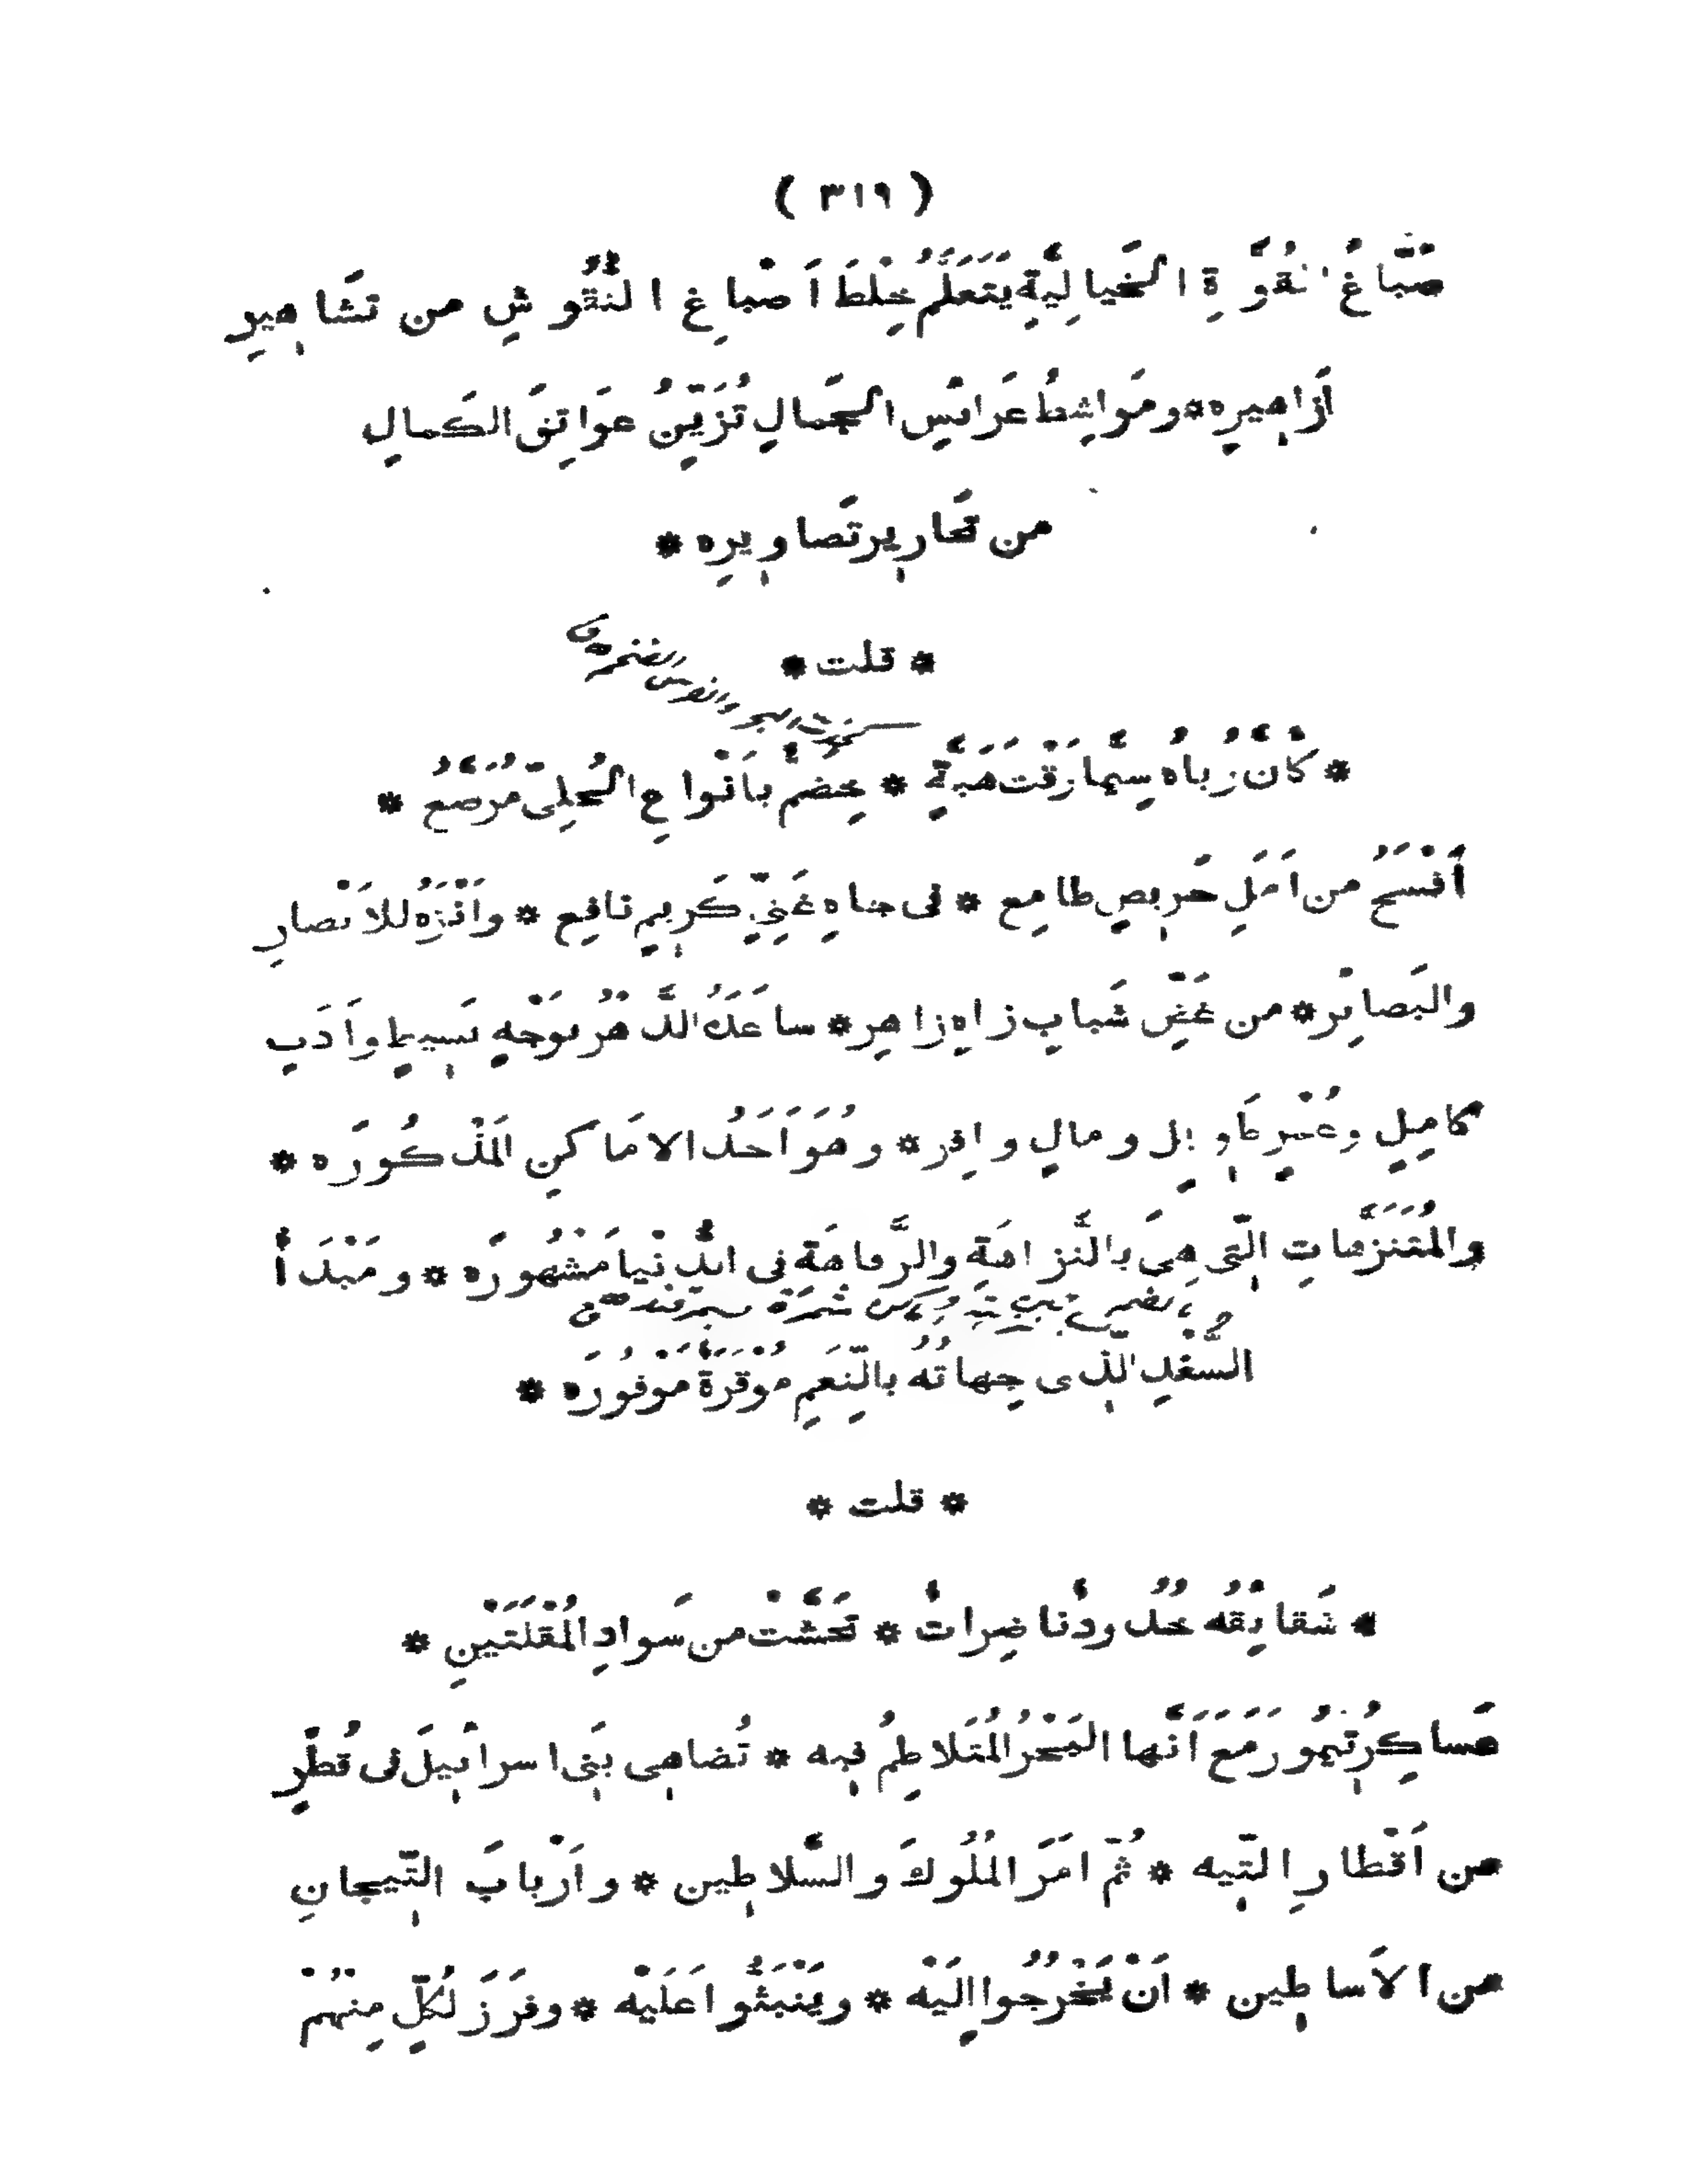 ( ٣١٩ )
صَبَّاغُ القُوَّةِ الخَيالِيَّةِ يَتَعَلَّمُ خِلْطَ اَصْباغِ النُّقُوشِ من تَشاهِيرِ
اَزاهِيرِه * ومَواشِطُ عَرائسِ الجَمالِ تُزَيِّنُ عَواتِقَ الكَمالِ
من تَحارِيرِ تَصاوِيرِه *
* قلت *
* كَاَنَّ رُباهُ سِيَّما زَقْتَ هَبَّةٍ * خِضَمٌّ بِاَنْواعِ الحُلِىِّ مُرَصَّعُ *
اَفْسَحُ من اَمَلِ حَرِيصٍ طامِع * فى جاهِ غَنِىٍّ كَرِيمٍ نافِع * واَنْزَهُ للاَبْصارِ
والبَصائِر * من غَضِّ شَبابٍ زاهٍ زاهِر * ساعَدَهُ الدَّهْرُ بوَجْهٍ بَسِيطٍ واَدَبٍ
كامِلٍ وعُمْرٍ طَوِيلٍ ومالٍ وافِر * وهُوَ اَحَدُ الاَماكِنِ المَذْكُورَه *
والمُتَنَزَّهاتِ الَّتِى هِىَ بالنَّزاهَةِ والرَّفاهَةِ فى الدُّنْيا مَشْهُورَه * ومَبْدَأُ
السُّغْدِ الَّذِى جِهاتُهُ بالنِّعَمِ مُوْقَرَةٌ مَوْفُورَه *
* قلت *
* شَقايِقُهُ خُدُودٌ ناضِراتٌ * تَحَشَّتْ من سَوادِ المُقْلَتَيْنِ *
عَساكِرُ تِيمُورَ مَعَ اَنَّها البَحْرُ المُتَلاطِمُ فِيه * تُضاهِى بَنِى اسرائِيلَ فى قُطْرٍ
من اَقْطارِ التِّيه * ثُمَّ اَمَرَ المُلُوكَ والسَّلاطِين * واَرْبابَ التِّيجانِ
من الاَساطِين * اَنْ يَخْرُجُوا اِلَيْه * ويَنْبَثُّوا عَلَيْه * وفَرَزَ لِكُلٍّ مِنْهُمْ